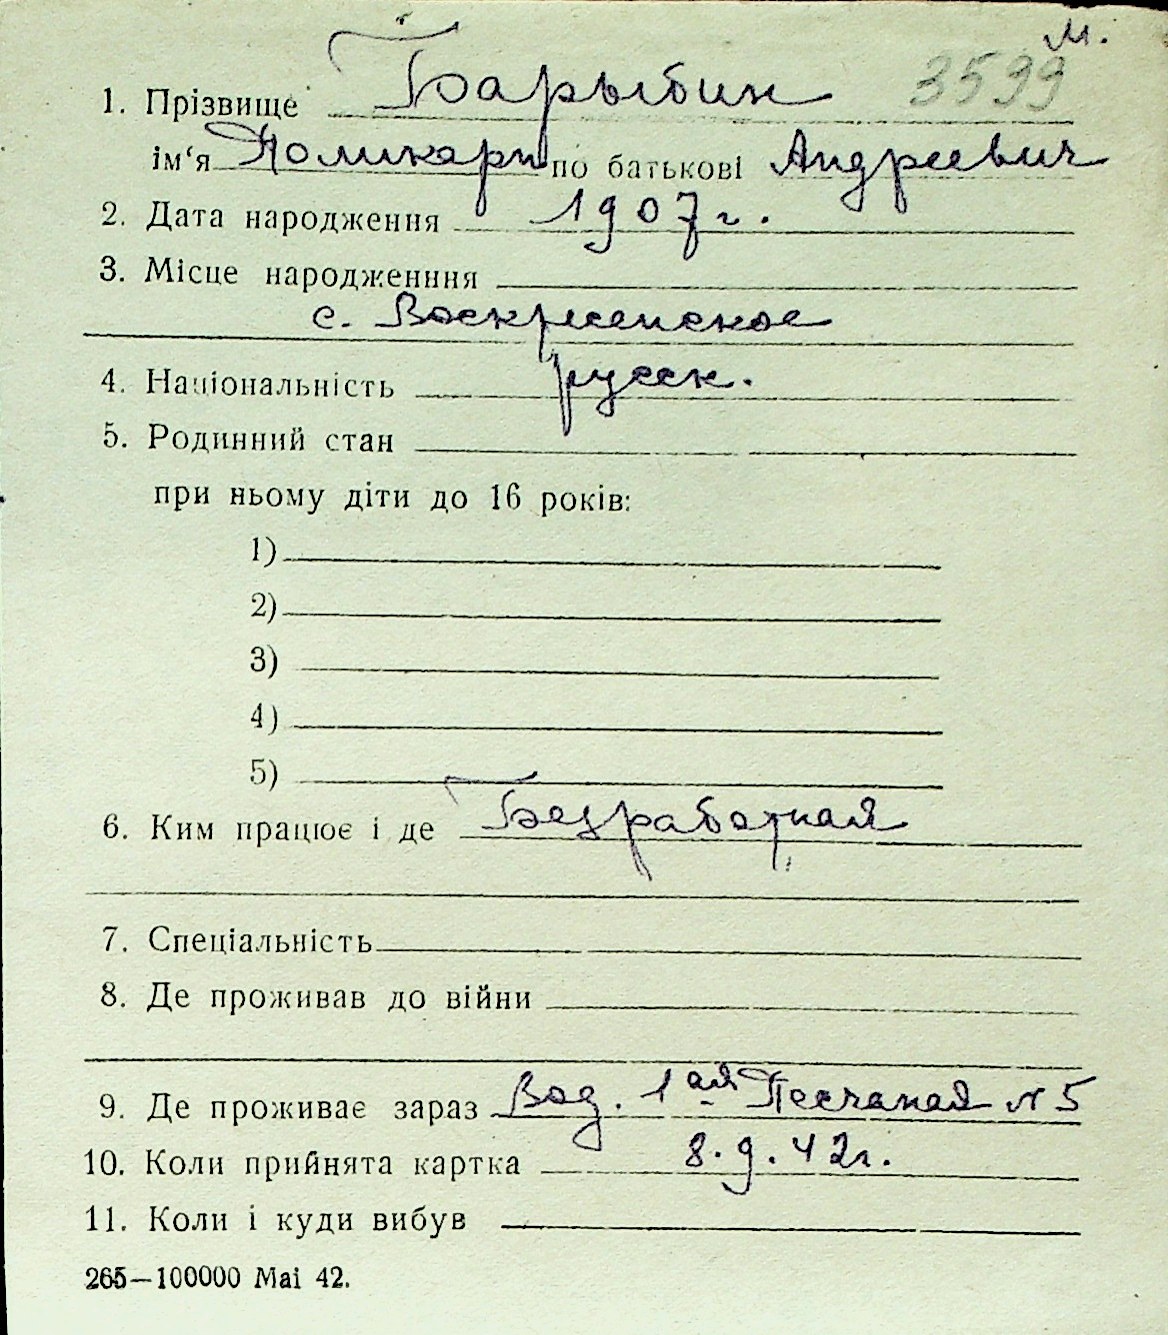 м.
3599
1. Прізвище Барыбин
ім‘я Поликарп по батькові Андреевич
2. Дата народження 1907 г.
3. Місце народженння
с. Воскресенское
4. Національність русск.
5. Родинний стан
при ньому діти до 16 років:
1)
2)
3)
4)
5)
6. Ким працює і де Безработная
7. Спеціальність
8. Де проживав до війни
9. Де проживає зараз Вод. 1ая Песчаная № 5
10. Коли прийнята картка 8.9.42г.
11. Коли і куди вибув
265—100000 Mai 42.